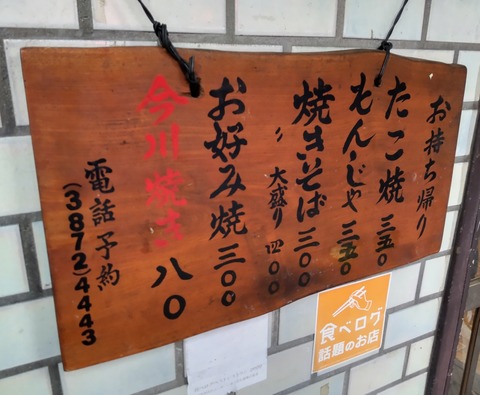 お持ち帰り
たこ焼 三五〇
もんじゃ 三五〇
焼きそば 三〇〇
〃 大盛り 四〇〇
お好み焼 三〇〇
今川焼き 八〇
電話予約
(3872)4443
食べログ
話題のお店